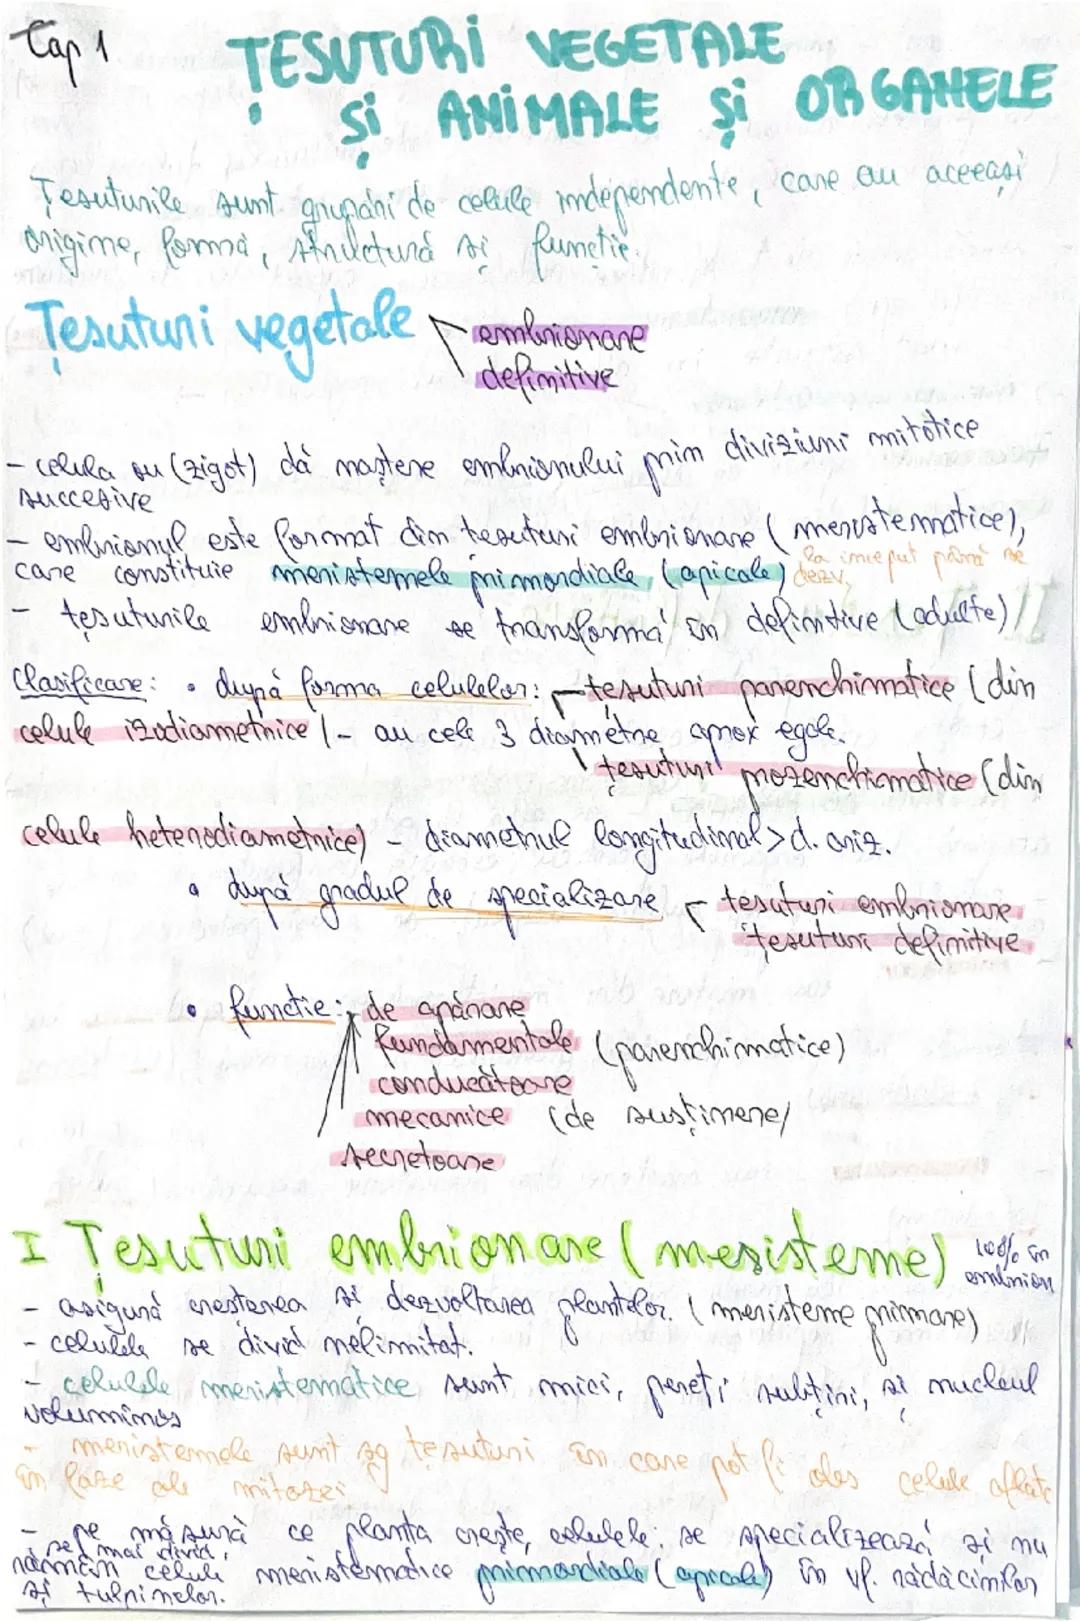 Cap 1
ȚESUTURI VEGETALE
ȘI ANIMALE ȘI ORGANELE
Țesuturile sunt grupări de celule independente, care au aceeași
origine, formă, structură și funcție.
Țesuturi vegetale
embrionare
definitive
- celula ou (zigot) dă naștere embrionului prin diviziuni mitotice
succesive
- embrionul este format din țesuturi embrionare (meristematice),
care constituie meristemele primordiale (apicale)
la început până se
dezv.
- țesuturile embrionare se transformă în definitive (adulte)
Clasificare: • după forma celulelor: țesuturi parenchimatice (din
celule izodiametrice) - au cele 3 diametre aprox egale.
țesuturi prozenchimatice (din
celule heterodiametrice) - diametrul longitudinal > d. oriz.
• după gradul de specializare țesuturi embrionare
țesuturi definitive
• funcție: de apărare
fundamentale (parenchimatice)
conducătoare
mecanice (de susținere)
secretoare
I Țesuturi embrionare (meristeme) 100% în
embrion
- asigură creșterea și dezvoltarea plantelor. (meristeme primare)
- celulele se divid nelimitat.
- celulele meristematice sunt mici, pereți subțiri, și nucleul
voluminos
- meristemele sunt sg țesuturi în care pot fi obs celule aflate
în faze ale mitozei
- pe măsură ce planta crește, celulele se specializează și nu
se mai divid,
rămân celule meristematice primordiale (apicale) în vf. rădăcinilor
și tulpinelor.